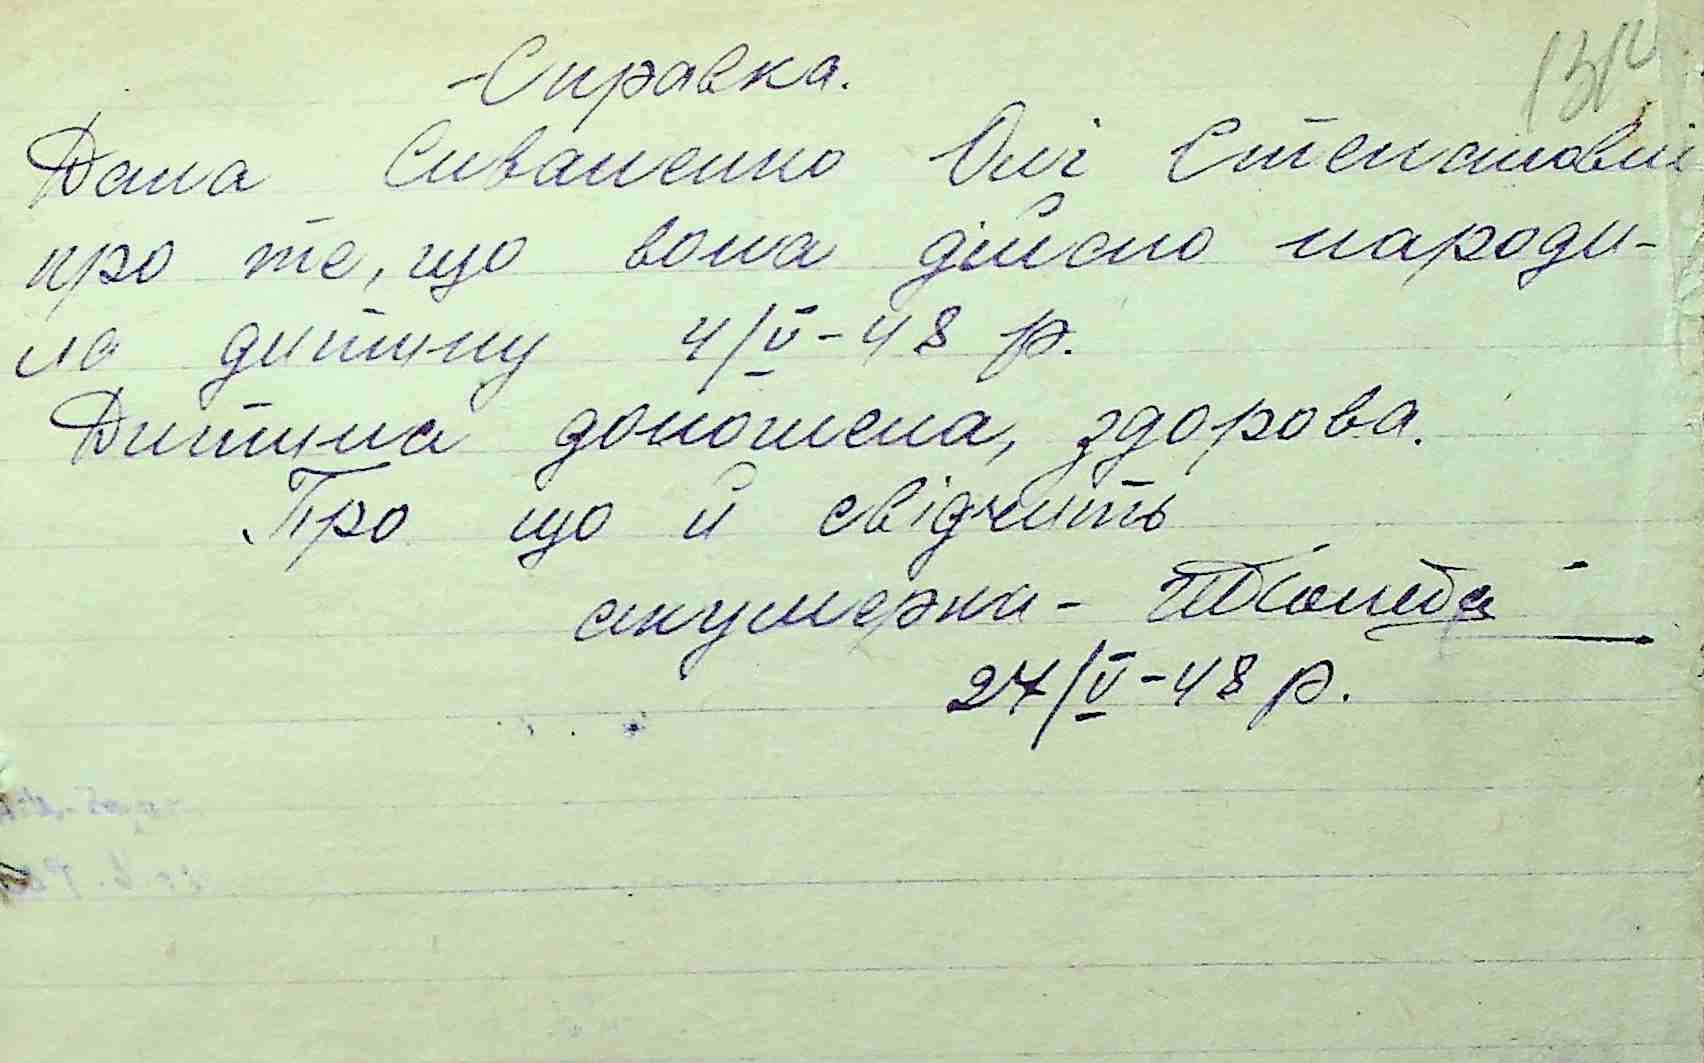 Справка.
Дана Сиваненко Олі Степановні
про те, що вона дійсно народи-
ла дитину 4/V-48 р.
Дитина доношена, здорова.
Про що й свідчить
акушерка -
27/V-48 р.